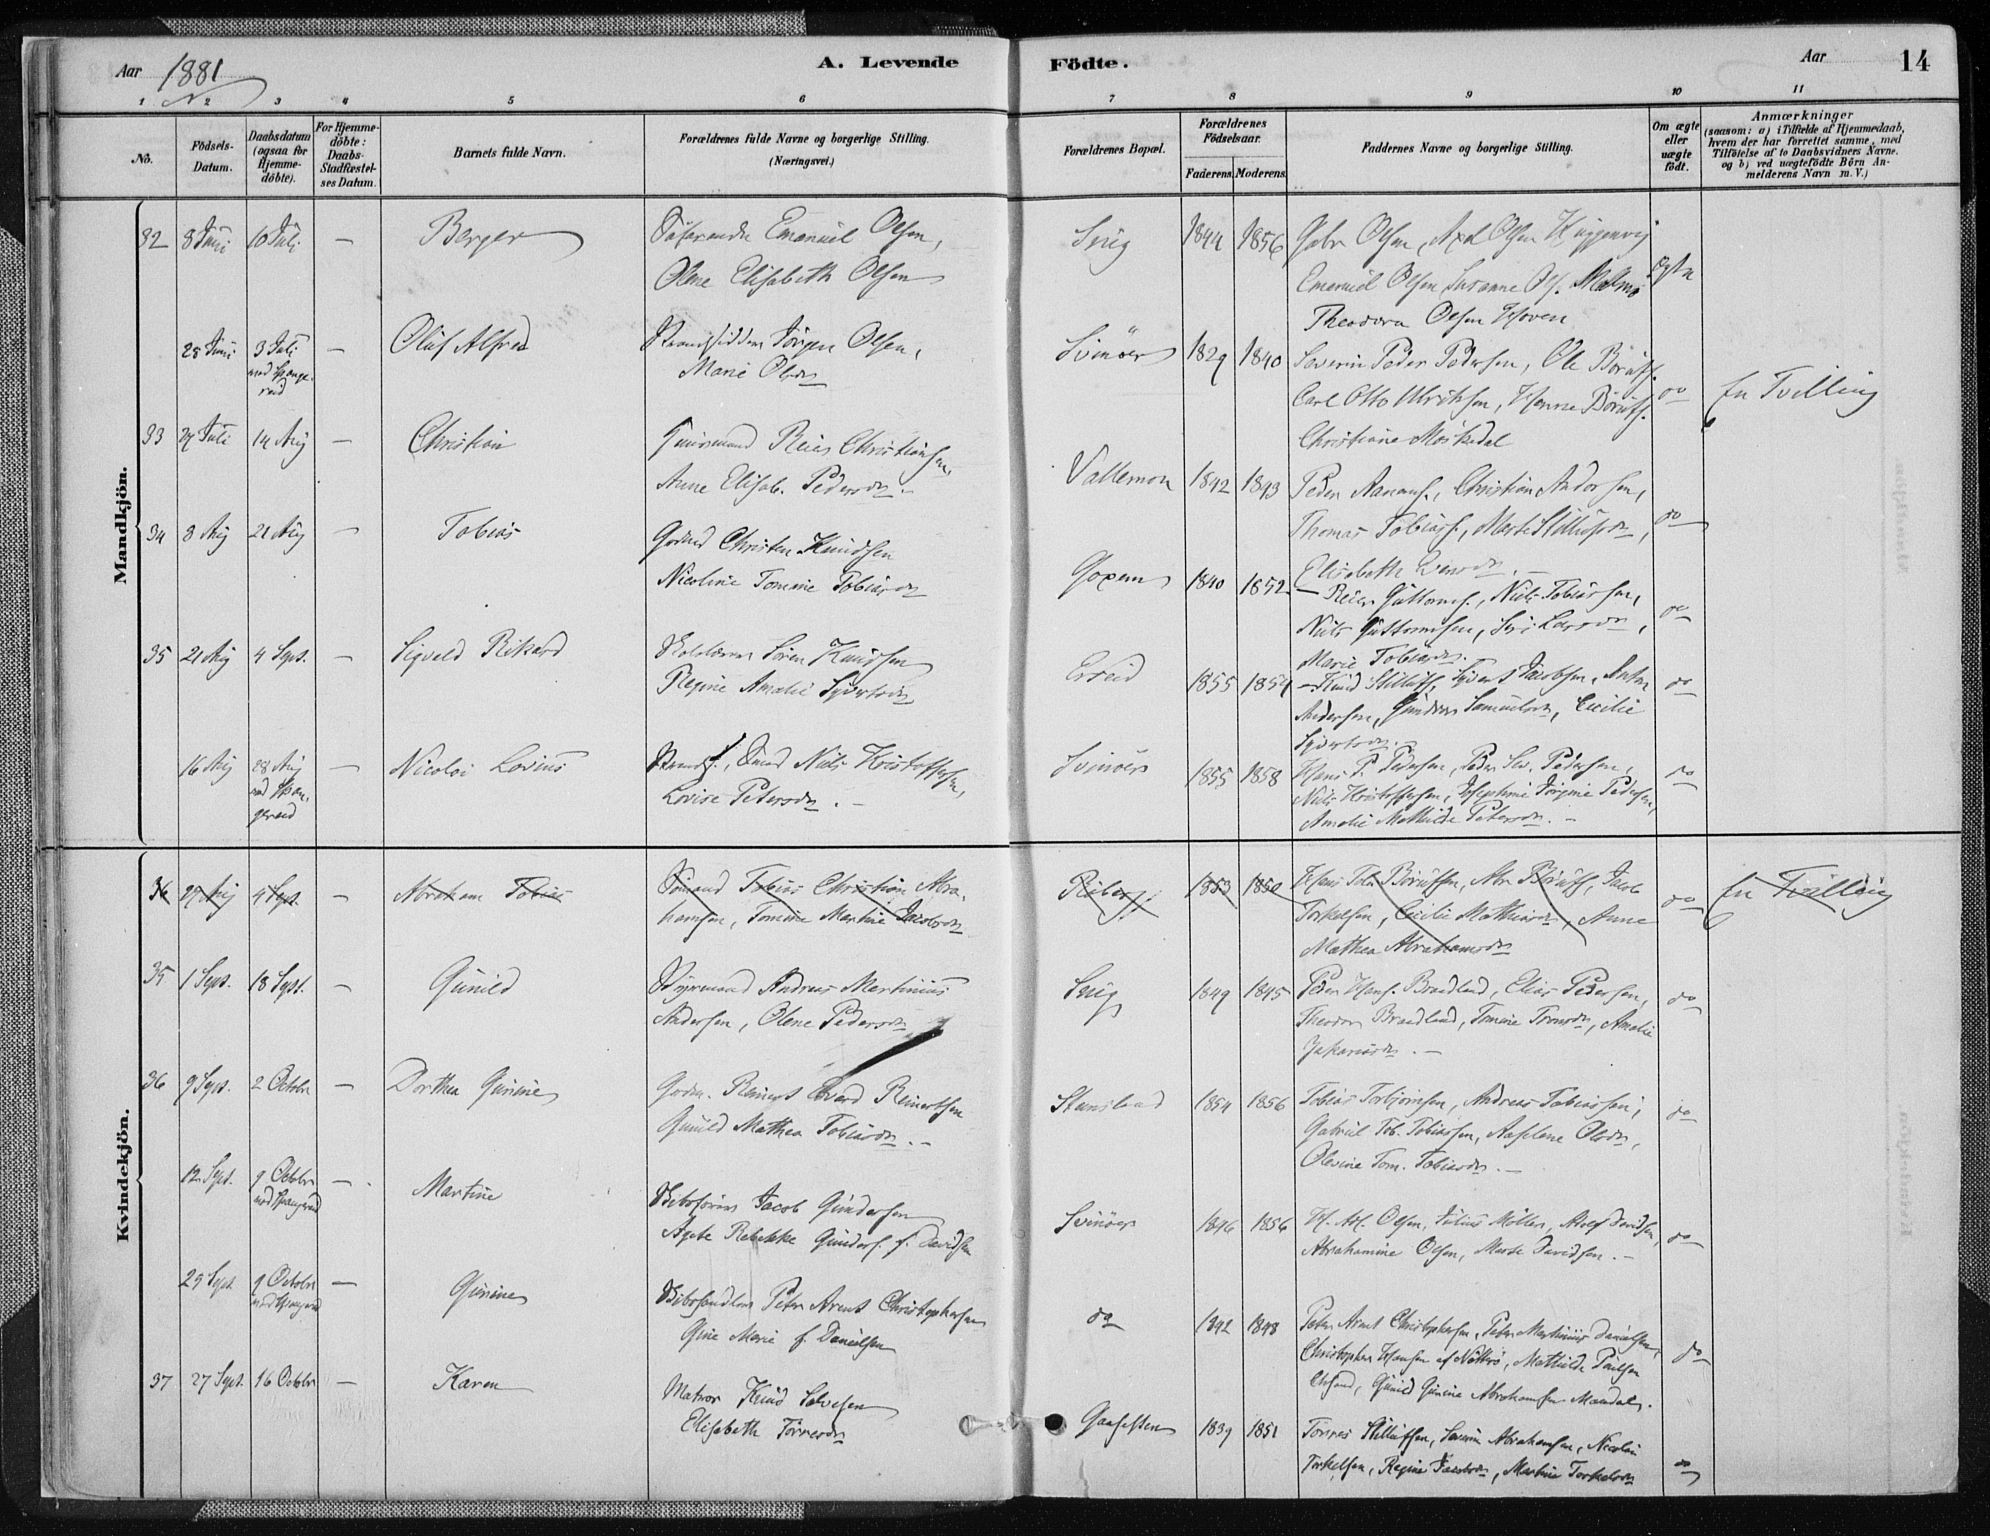 Aar 1881
A. Levende
Födte.
Aar
14
1 2 3 4 5 6 7 8 9 10 11
No.
Födsels-
Datum.
Daabsdatum
(ogsaa for
Hjemme-
döbte).
For Hjemme-
döbte:
Daabs-
Stadfæstel-
ses Datum.
Barnets fulde Navn.
Forældrenes fulde Navne og borgerlige Stilling.
(Næringsvei.)
Forældrenes Bopæl.
Forældrenes
Födselsaar.
Faderens. Moderens.
Faddernes Navne og borgerlige Stilling.
Om ægte
eller
uægte
födt.
Anmærkninger
(saasom: a) i Tilfælde af Hjemmedaab,
hvem der har forrettet samme, med
Tilföielse af to Daabsvidners Navne.
og b) ved uægtefödte Börn An-
melderens Navn m. V.)
Mandkjön.
32 8 Juni 10 Juli — Berger
Emanuel Olsen,
Olene Elisabeth Olsen
1844 1856
Gabr Olsen, Axel Olsen
Emanuel Olsen Susanne Ols. Malmö
Theodora Olsen Hoven
ægte
25 Juni 3 Juli — Oluf Alfred
ved Spange-
reid
Strandsidder Jörgen Olsen,
Marie Olsdn
Svinöer 1829 1840
Severin Peder Pedersen, Ole Börufs.
Carl Otto Ulriksen, Hanne Börufs.
Christiane Möskedal
do
En Tvilling
33 27 Juli 14 Aug — Christian
Reier Christiansen,
Anne Elisab. Pedersdn. -
Vallemon 1842 1843
Peder Aanons., Christian Andersen,
Thomas Tobias., Marte Stillufsdn,
Elisabeth
do
34 8 Aug 21 Aug — Tobias
Gaardmd Christen Knudsen
Nicoline Tomine Tobiasdn
1840 1852
- Reier Guttorms., Niels Tobiassen,
Niels Guttormsen, Siri Larsdn,
Marie Tobiasdn.
do
35 21 Aug 4 Sept. — Sigvald Rikard
Sören Knudsen
Regine Amalie Syvertsdn
1855 1854
- Knud Stillufs., Syvert Jacobsen, Anton
Andersen, Gundvor Samuelsdn, Cecilie
Syvertsdn. -
do
16 Aug 28 Aug — Nicolai Lovius
ved Span-
gereid
Niels Kristoffersen,
Lovise Petersdn. -
Svinöer 1855 1858
Hans P. Pedersen, Peder Sev. Pedersen,
Niels Kristoffersen, Josephine Jörgine Pedersen,
Amalie Mathilde Petersdn. -
do
Kvindekjön.
36 27 Aug 4 Sept. — Abraham Tobias
Sömand Tobias Christian Abra-
hamsen, Tomine Martine Jacobsdn
1853 1850
Hans Tob. Börufsen, Abr Börufs., Jacob
Torkelsen, Cecilie Mathiasdn, Anne
Mathea Abrahamsdn
do
En Tvilling
35 1 Sept. 18 Sept. — Gunild
Styrmand Andreas Martinius
Andersen, Olene Pedersdn
1849 1845
Peder Hans. Braedland, Elias Pedersen,
Theodor Braedland, Tomine Tronsdn, Amalie
Zakariasdn. -
do
36 9 Sept. 2 Octobr — Dorthea Gunine
Gaardm. Reinert Edvard Reinertsen
Gunild Mathea Tobiasdn. -
Stensland 1854 1856
Tobias Torbjörnsen, Andreas Tobiassen,
Gabriel Tob. Tobiassen, Aaslene Olsdn,
Olevine Tom. Tobiasdn. -
do
12 Sept. 9 Octobr — Martine
ved Spangereid
Jacob Gundersen
Agete Rebekke Gunders. f. Davidsen
Svinöer 1846 1856
H. Ad. Olsen, Julius Möller, Adolf Davidsen,
Abrahamine Olsen, Marte Davidsen. -
do
25 Sept. 9 Octobr — Gunine
ved Spangereid
Peter Arent Christophersen
Gine Marie f. Danielsen
do 1842 1848
Peter Arent Christophersen, Peter Martinius Danielsen,
Christopher Hansen af Nötterö, Mathilde Paulsen
Gunild Gunine Abrahamsen Mandal.
do
37 27 Sept. 16 Octobr — Karen
Matros Knud Salvesen
Elisabeth Törresdn
1839 1851
Törres Stillufsen, Severin Abrahamsen, Nicolai
Torkelsen, Regine Jacobsdn, Martine Torkelsdn
do